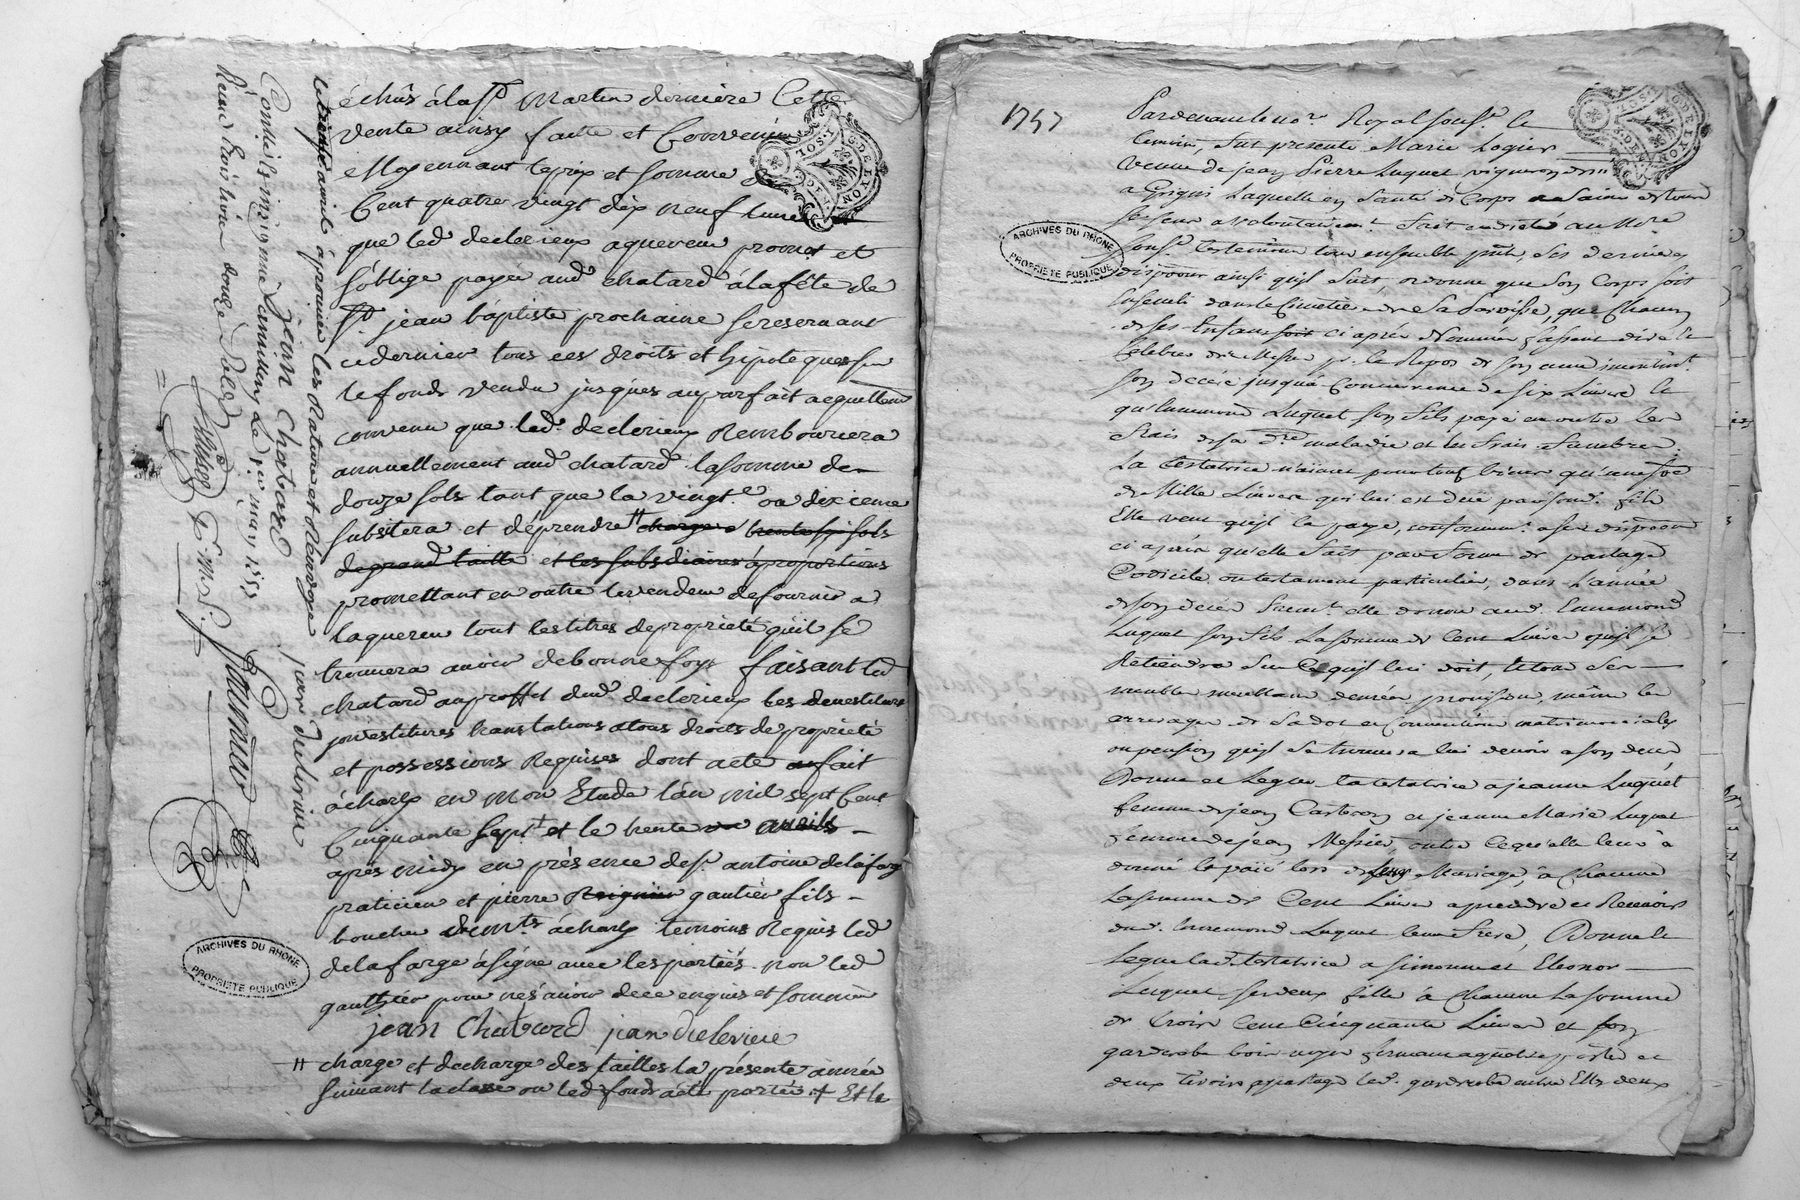 échûs à la St Martin derniere Cette
vente ainsy faitte et Convenue
Moyennant le prix et somme de
Cent quatre vingt dix neuf livres
que led declerieux aquereur promet et
s'oblige payer aud chatard à la fête de
St jean baptiste prochaine se reservant
ce dernier tous ses droits et hipoteques sur
le fonds vendu jusques au parfait acquittement
convenu que led. declerieux Remboursera
annuellement aud chatard la somme de
douze sols tant que la vingte ou dixieme
subsistera et déprendre # charge trente six sols
de grand taille et les subsdiaires à proportions
promettant en outre le vendeur de fournir a
laquereur tout les titres de proprieté qu'il se
trouvera avoir de bonne foys faisant led
chatard au proffit dud declerieux les devestitures
jnvestitures translations a tous droits de proprieté
et possessions Requises dont acte fait
à charly en mon Etude l'an mil sept Cent
Cinquante Sept et le trente avril
apres midy en présence de sr antoine delafarge
praticien et pierre gautier fils
boucher demts à charly temoins Requis led
delafarge à signé avec les parties non led
gauthier pour ne savoir de ce enquis et sommé
jean Chatard jean declerieux
# charge et decharge des tailles la présente année
suivant la classe ou led fonds a été porté + Et le
le trente avril aprouvé les Rature et Renvoye
jean Chatard jean declerieux
Controllé a le may 1757
Reçu douze sols
ARCHIVES DU RHONE
PROPRIETE PUBLIQUE
G. DE LYON
1757
Pardevant le nore Royal sousé. et
temoins, fut presente Marie Logier
veuve de jean Pierre Luquet vigneron
a Grigni Laquelle en santé de Corps
ses jours a volontairemt. fait
ensemble ses dernieres
dispoon ainsi qu'il suit, ordonne que son Corps soit
Enseveli dans le Cimetiere de sa Paroisse, que Chacun
de ses Enfans soit ci après Nommés fassent dire et
Celebrer Messes pr. le Repos de son ame
son décéz jusqu'a Concurrence de six Livres et
qu'Ennemond Luquet son fils paye en outre les
frais de sa dre maladie et les frais funebres
La testatrice n'aiant pour tout bien qu'une
de Mille Livres qui lui est due par sond. fils
Elle veut qu'il la paye, conformemt. a ses dispoons
ci après qu'elle fait par forme de partage
Codicile ou testament particulier, dans l'année
de son décéz elle donne aud. Ennemond
Luquet son fils La somme de Cent Livres qu'il se
Retiendra sur Ce qu'il lui doit,
meubles meublans denrées provisions, même les
arrerages de sa dot et Convention matrimoniales
ou pension qu'il se trouvera lui devoir a son décéz
Donne et Legue la testatrice a jeanne Luquet
femme de jean et jeanne Marie Luquet
femme de jean Messier, outre Ce qu'elle leur à
donné et païé lors de leurs Mariage, à Chacune
La somme de Cent Livres a prendre et Recevoir
dud. Ennemond Luquet leur frere, Donne et
Legue lad. testatrice a Simonne et Eleonor
Luquet ses deux filles à Chacune La somme
de trois Cent Cinquante Livres et son
garderobe bois noyer fermant
deux tiroirs partage led. garderobe entre Elles deux
ARCHIVES DU RHONE
PROPRIETE PUBLIQUE
G. DE LYON